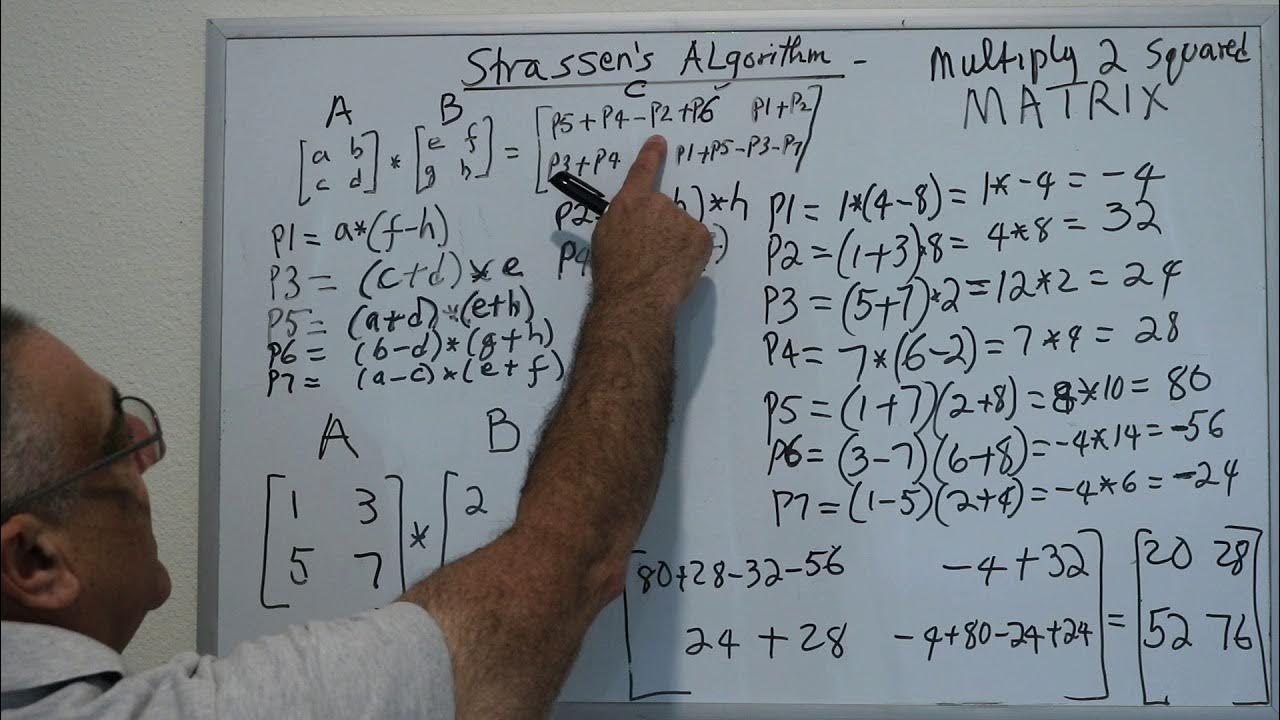 Strassen's ALgorithm - Multiply 2 Squared
MATRIX
A B C
[a b] * [e f] = [P5+P4-P2+P6 P1+P2]
[c d] [g h] [P3+P4 P1+P5-P3-P7]
P1= a*(f-h)
P2 )*h
P3 = (c+d)*e
P4 )
P5= (a+d)*(e+h)
P6 = (b-d)*(g+h)
P7= (a-c)*(e+f)
P1= 1*(4-8)= 1*-4 = -4
P2=(1+3)*8= 4*8 = 32
P3 =(5+7)*2=12*2 = 24
P4= 7*(6-2)=7*4 = 28
P5 =(1+7)(2+8)=8*10= 80
P6=(3-7)(6+8)=-4*14=-56
P7=(1-5)(2+4)=-4*6=-24
A B
[1 3] * [2
[5 7] [
[80+28-32-56 -4+32] = [20 28]
[24+28 -4+80-24+24] [52 76]